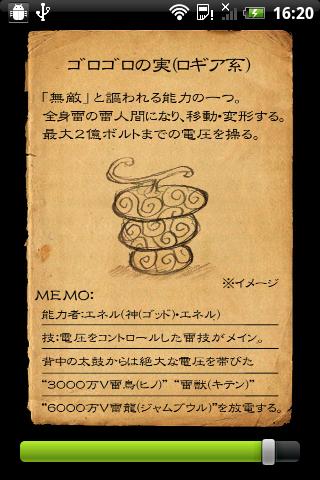 16:20
ゴロゴロの実(ロギア系)
「無敵」と謳われる能力の一つ。
全身雷の雷人間になり、移動・変形する。
最大2億ボルトまでの電圧を操る。
※イメージ
MEMO:
能力者:エネル(神(ゴッド)・エネル)
技:電圧をコントロールした雷技がメイン。
背中の太鼓からは絶大な電圧を帯びた
"3000万V雷鳥(ヒノ)" "雷獣(キテン)"
"6000万V雷龍(ジャムブウル)"を放電する。